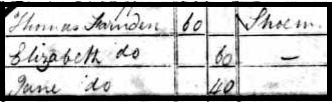 Thomas Farnden 60 Shoem.
Elizabeth do 60 –
Jane do 40